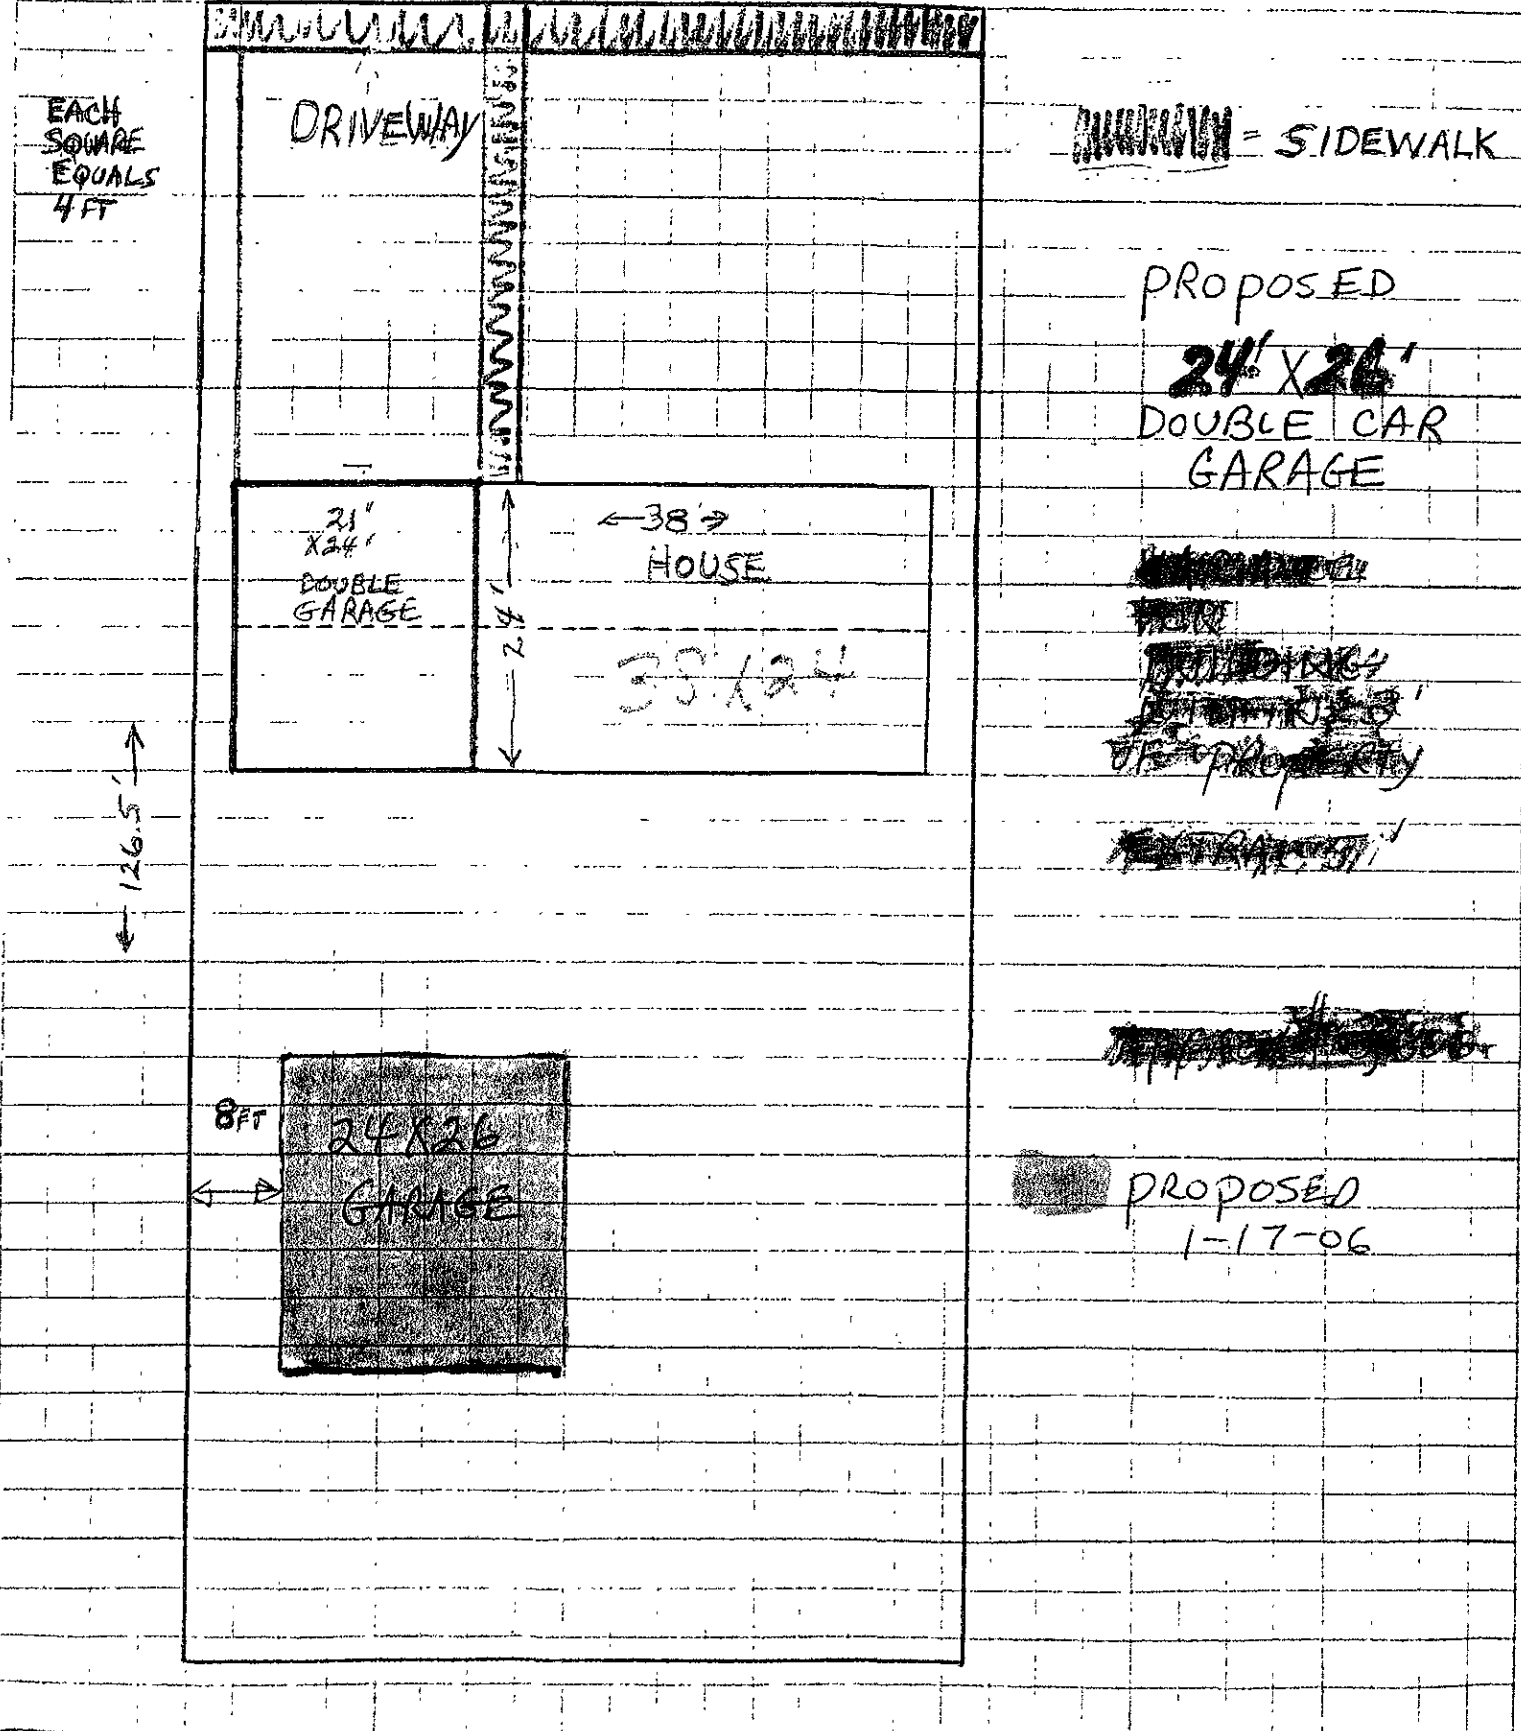 EACH
SQUARE
EQUALS
4 FT
DRIVEWAY
= SIDEWALK
PROPOSED
24' X 26'
DOUBLE CAR
GARAGE
21"
X24'
DOUBLE
GARAGE
24'
←38'→
HOUSE
38X24
126.5'
OF PROPERTY
8FT
24X26
GARAGE
PROPOSED
1-17-06